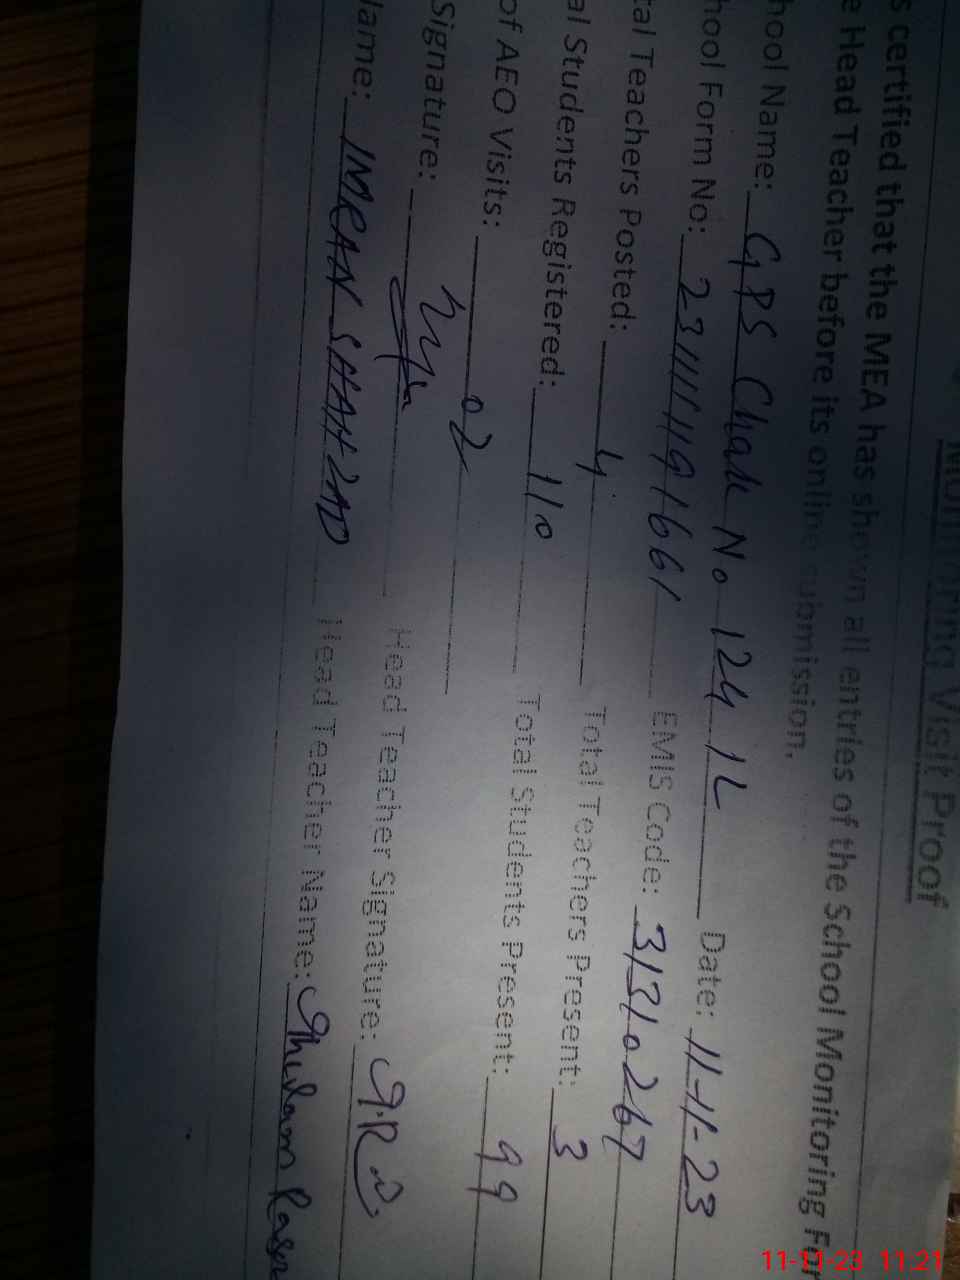 Monitoring Visit Proof
s certified that the MEA has shown all entries of the School Monitoring For
e Head Teacher before its online submission.
hool Name: GPS Chak No 124 1L Date: 11-11-23
hool Form No: EMIS Code: 31310267
tal Teachers Posted: 4 Total Teachers Present: 3
al Students Registered: 110 Total Students Present: 99
of AEO Visits: 02
Signature: Head Teacher Signature:
Name: IMRAN SHAHZAD Head Teacher Name: Ghulam Rasool
11-11-23 11:21